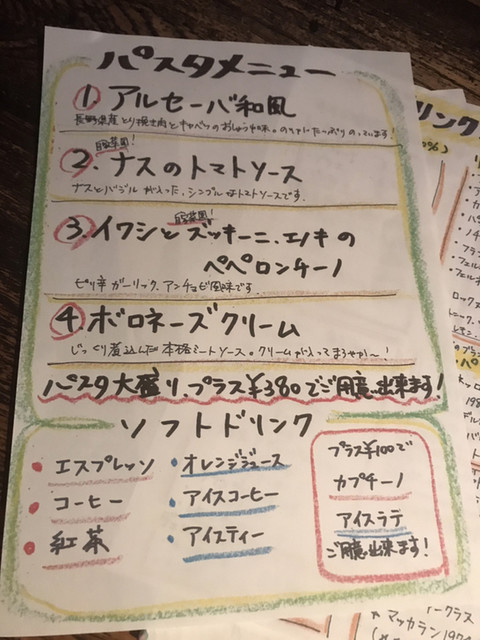 パスタメニュー
1. アルセーバ和風
長野県産とり挽き肉とキャベツのおしょうゆ味。のりがたっぷりのっています!
2. ナスのトマトソース
ナスとバジルが入った、シンプルなトマトソースです。
3. イワシとズッキーニ、エノキの
ペペロンチーノ
ピリ辛ガーリック、アンチョビ風味です。
4. ボロネーズクリーム
じっくり煮込んだ本格ミートソース。クリームが入ってまろやか〜!
パスタ大盛り、プラス¥380でご用意出来ます!
ソフトドリンク
・エスプレッソ
・コーヒー
・紅茶
・オレンジジュース
・アイスコーヒー
・アイスティー
プラス¥100で
カプチーノ
アイスラテ
ご用意出来ます!
リンク
マッカラン